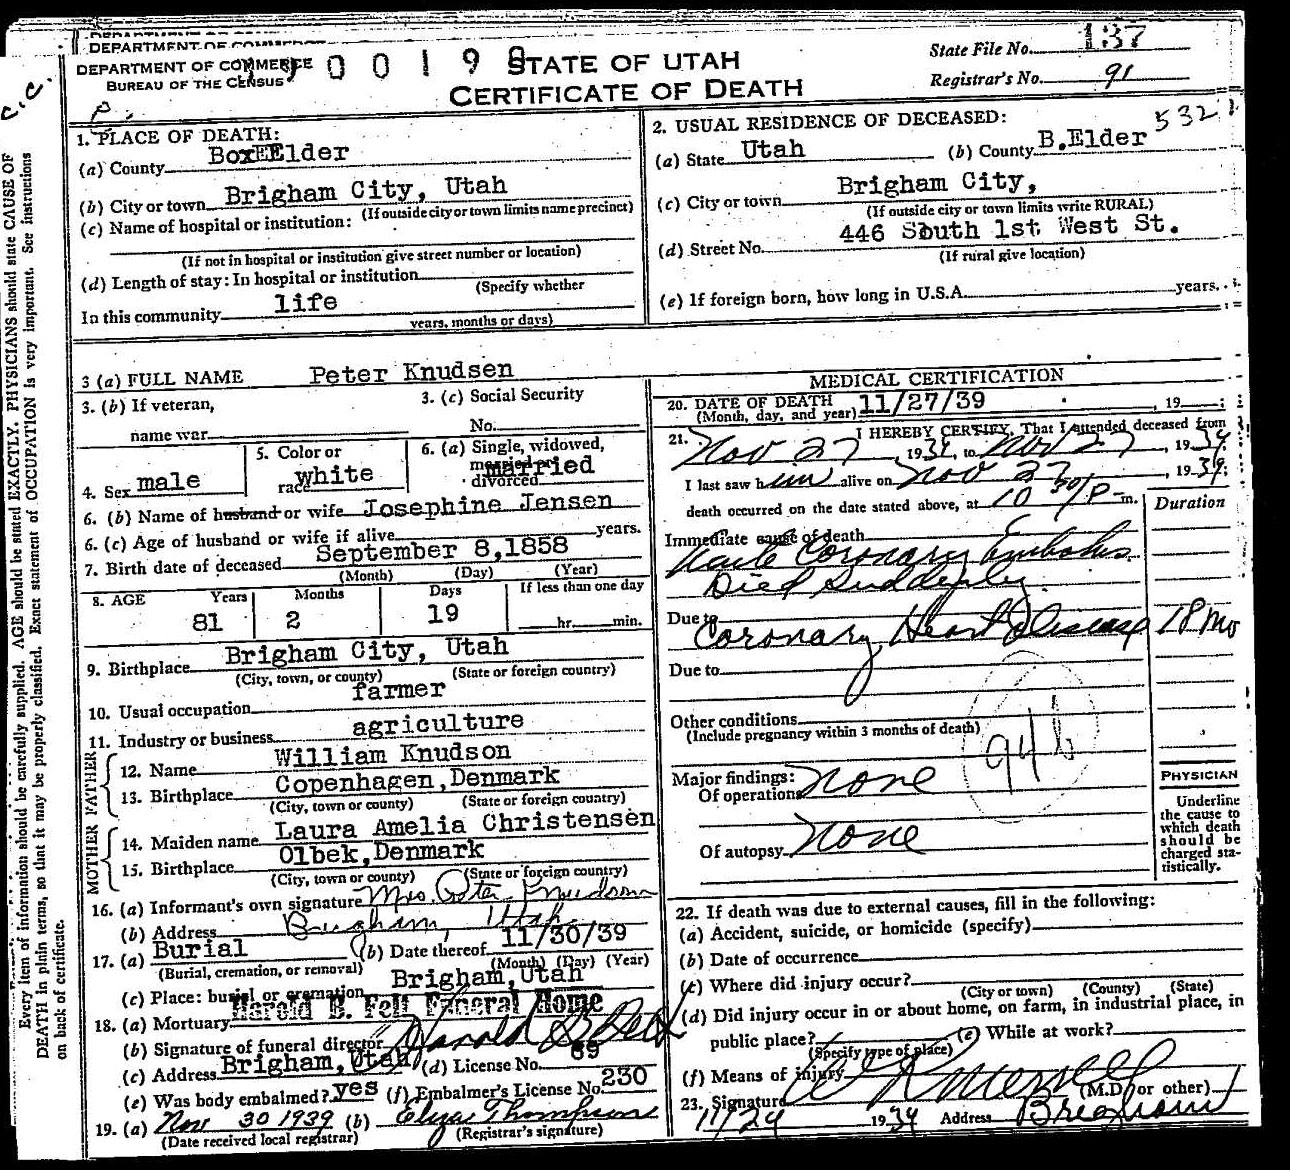 DEPARTMENT OF COMMERCE
DEPARTMENT OF COMMERCE
BUREAU OF THE CENSUS
0 0 1 9
STATE OF UTAH
CERTIFICATE OF DEATH
State File No. 137
Registrar's No. 91
C.C.
P.
532
1. PLACE OF DEATH:
(a) County BoxEElder
(b) City or town Brigham City, Utah
(If outside city or town limits name precinct)
(c) Name of hospital or institution:
(If not in hospital or institution give street number or location)
(d) Length of stay: In hospital or institution
(Specify whether
In this community life
years, months or days)
2. USUAL RESIDENCE OF DECEASED:
(a) State Utah (b) County B.Elder
(c) City or town Brigham City,
(If outside city or town limits write RURAL)
(d) Street No. 446 South 1st West St.
(If rural give location)
(e) If foreign born, how long in U.S.A. years.
3 (a) FULL NAME Peter Knudsen
3. (b) If veteran,
name war
3. (c) Social Security
No.
4. Sex male
5. Color or
race white
6. (a) Single, widowed,
married or
divorced married
6. (b) Name of husband or wife Josephine Jensen
6. (c) Age of husband or wife if alive years.
7. Birth date of deceased September 8,1858
(Month) (Day) (Year)
8. AGE Years Months Days If less than one day
81 2 19 hr. min.
9. Birthplace Brigham City, Utah
(City, town, or county) (State or foreign country)
10. Usual occupation farmer
11. Industry or business agriculture
FATHER
12. Name William Knudson
13. Birthplace Copenhagen,Denmark
(City, town or county) (State or foreign country)
MOTHER
14. Maiden name Laura Amelia Christensen
15. Birthplace Olbek,Denmark
(City, town or county) (State or foreign country)
16. (a) Informant's own signature Mrs. Peter Knudson
(b) Address Brigham, Utah
17. (a) Burial (b) Date thereof 11/30/39
(Burial, cremation, or removal) (Month) (Day) (Year)
(c) Place: burial or cremation Brigham,Utah
18. (a) Mortuary Harold B. Felt Funeral Home
(b) Signature of funeral director Harold B Felt
(c) Address Brigham,Utah (d) License No. 89
(e) Was body embalmed? yes (f) Embalmer's License No. 230
19. (a) Nov 30 1939 (b) Eliza Thompson
(Date received local registrar) (Registrar's signature)
MEDICAL CERTIFICATION
20. DATE OF DEATH
(Month, day, and year) 11/27/39 , 19
21. I HEREBY CERTIFY, That I attended deceased from
Nov 27, 1939, to Nov 27, 1939
I last saw him alive on Nov 27 1939;
death occurred on the date stated above, at 10 30/P m.
Duration
Immediate cause of death
Acute Coronary Embolus
Died Suddenly
Due to Coronary Heart Disease 18 mo
Due to
Other conditions
(Include pregnancy within 3 months of death)
94b
Major findings:
Of operations None
Of autopsy None
PHYSICIAN
Underline
the cause to
which death
should be
charged sta-
tistically.
22. If death was due to external causes, fill in the following:
(a) Accident, suicide, or homicide (specify)
(b) Date of occurrence
(c) Where did injury occur?
(City or town) (County) (State)
(d) Did injury occur in or about home, on farm, in industrial place, in
public place? (e) While at work?
(Specify type of place)
(f) Means of injury
23. Signature (M.D. or other)
11/29 1939 Address Brigham
Every item of information should be carefully supplied. AGE should be stated EXACTLY. PHYSICIANS should state CAUSE OF
DEATH in plain terms, so that it may be properly classified. Exact statement of OCCUPATION is very important. See instructions
on back of certificate.